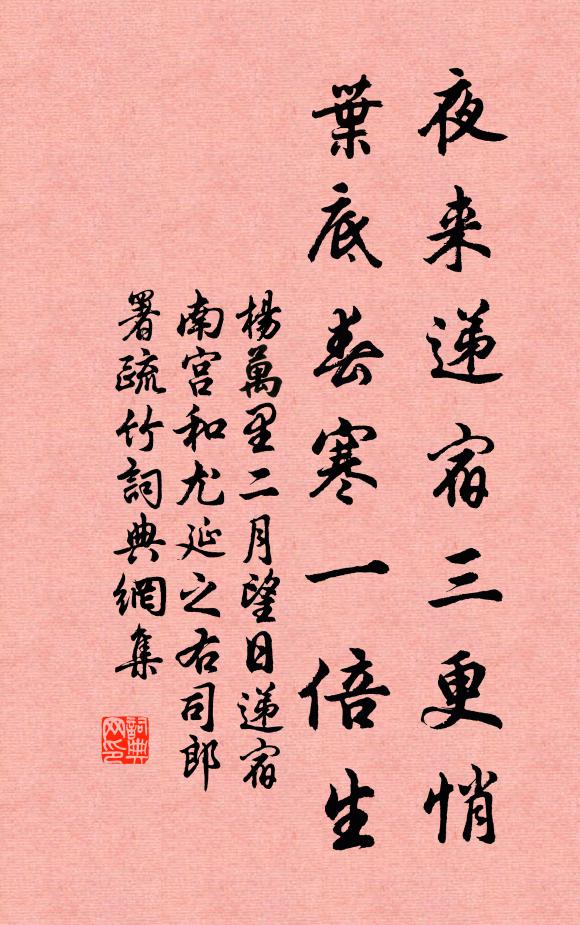 夜来递宿三更悄
葉底春寒一倍生
楊萬里二月望日递宿
南宫和尤延之右司郎
署疏竹詞典網集
詞典网印